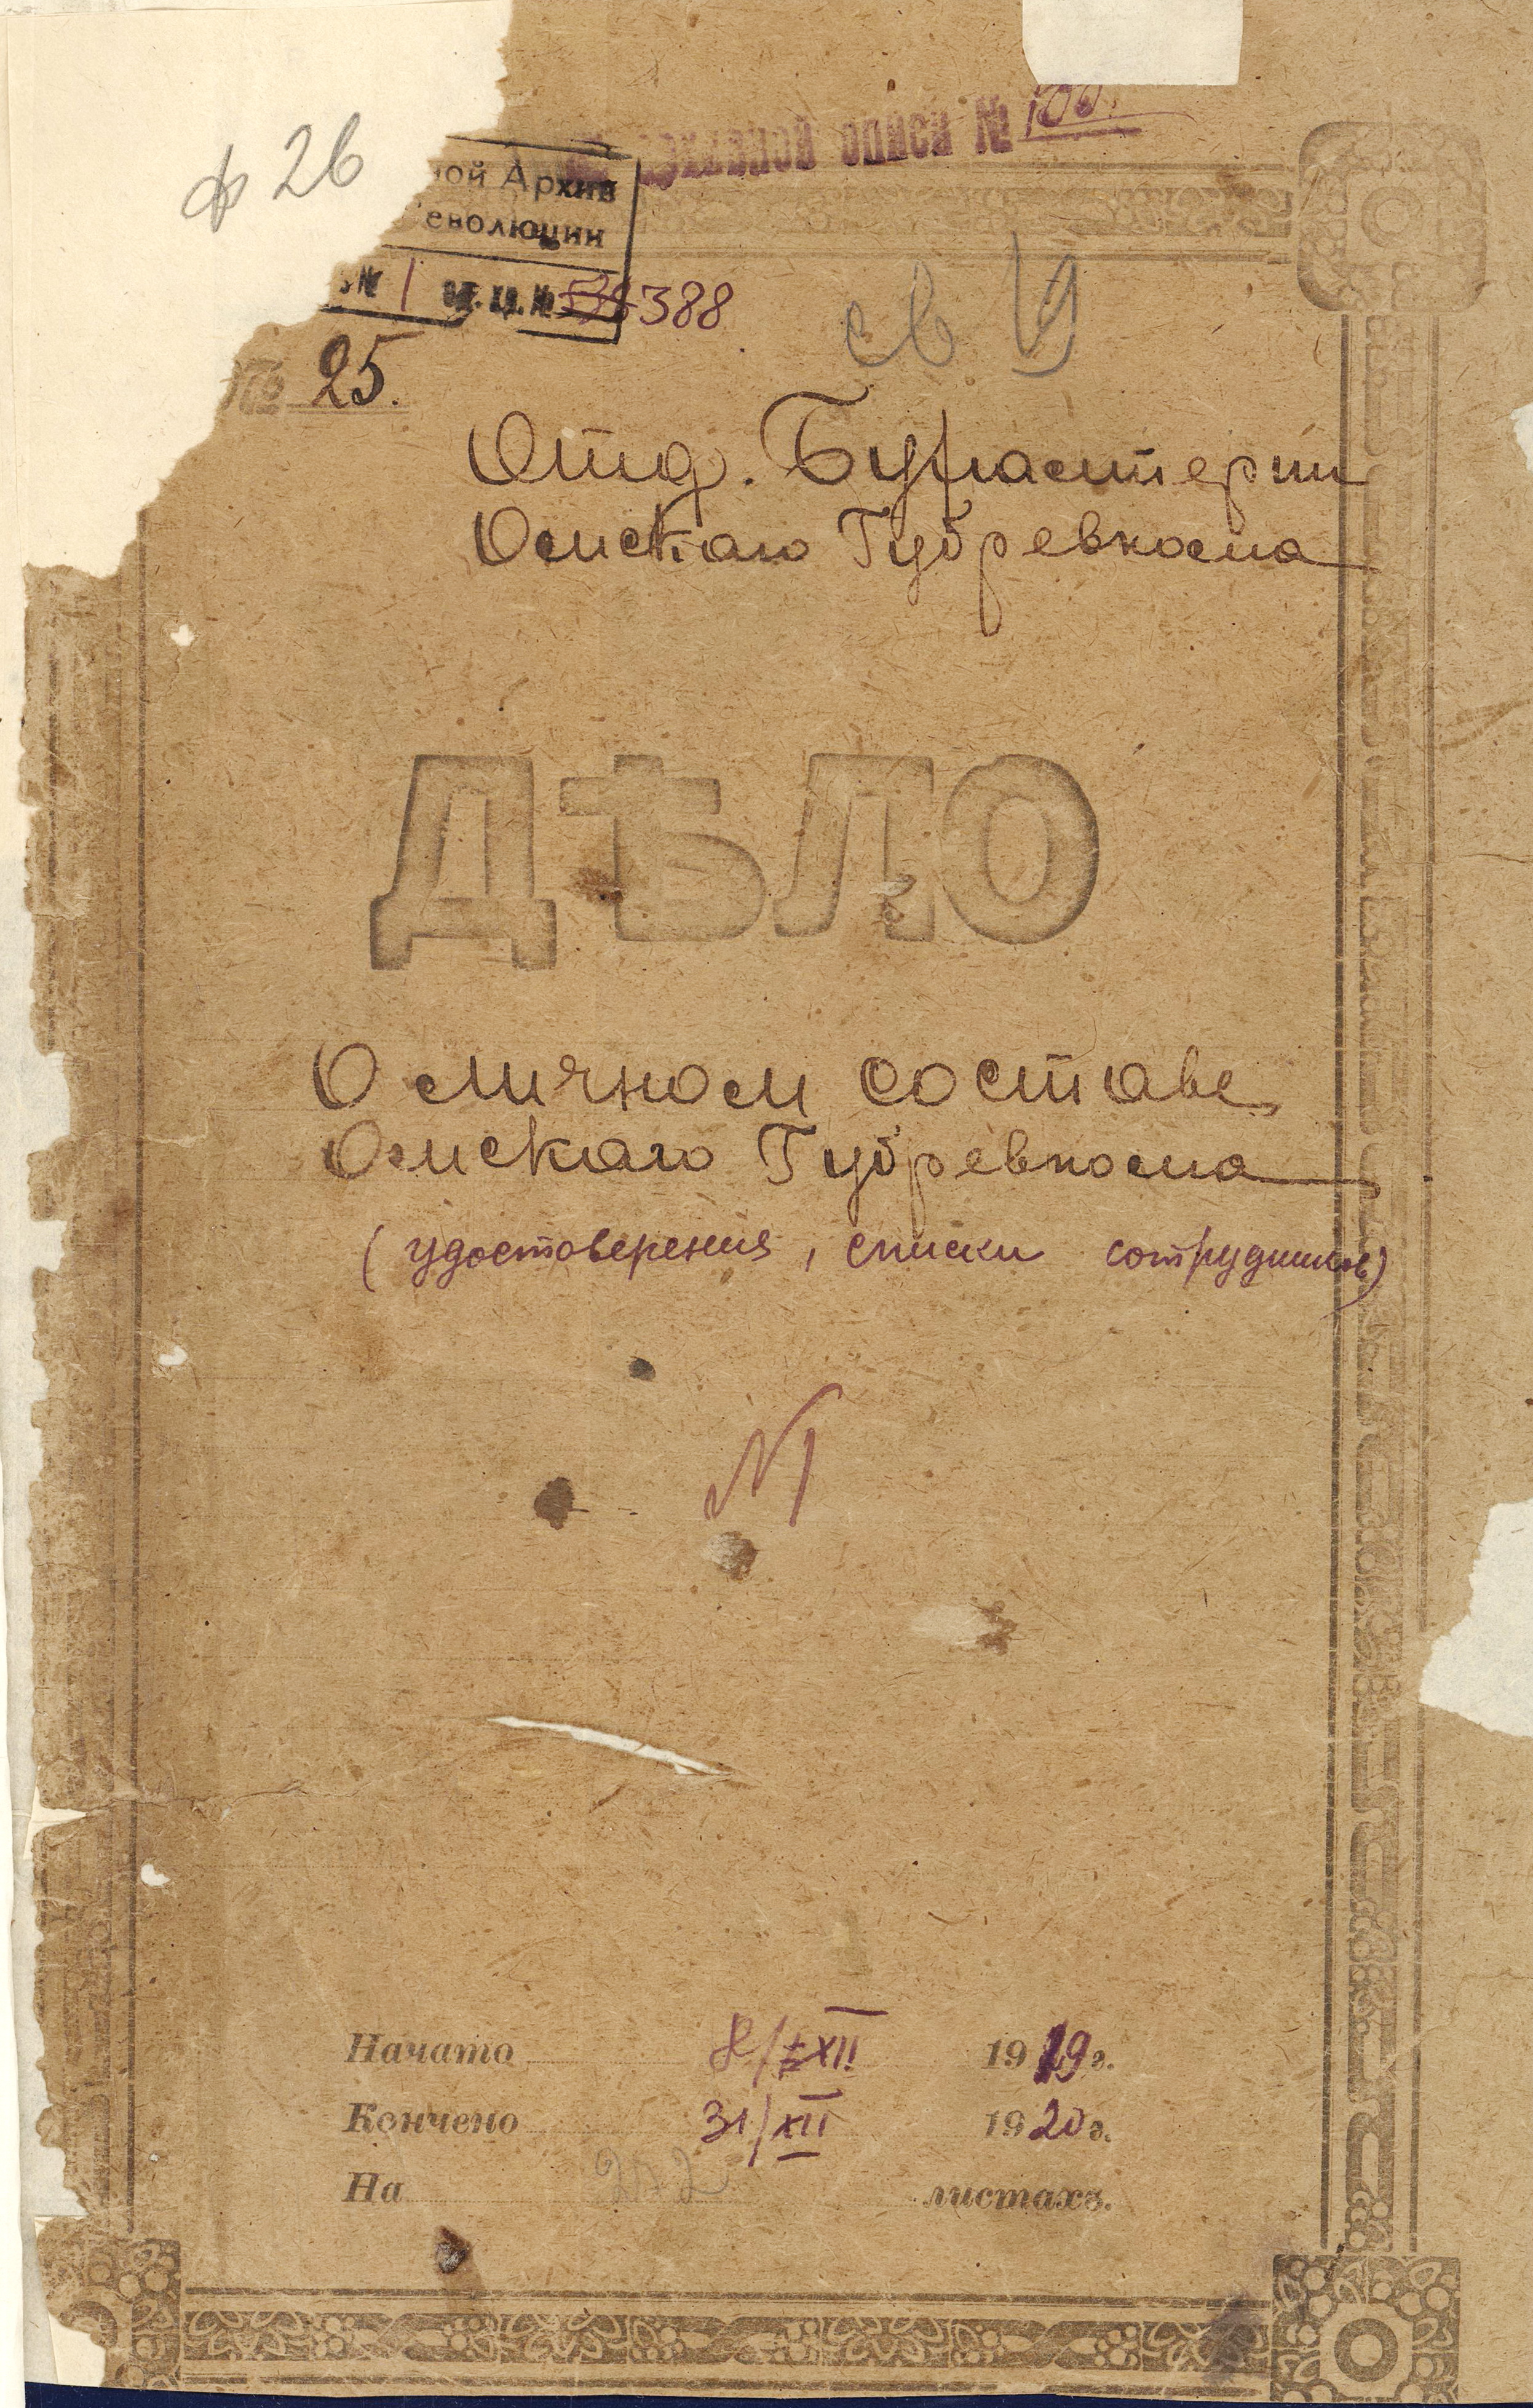 ф 26
архивной описи № 100.
ной Архив
еволюции
№ 1 ед. хр. № 388
св 14
№ 25.
Отд. Бухгалтерии
Омскаго Губревкома
ДѢЛО
О личном составе
Омскаго Губревкома
(удостоверения, списки сотрудников)
№1
Начато 8/XII 1919 г.
Кончено 31/XII 1920 г.
На листахъ.